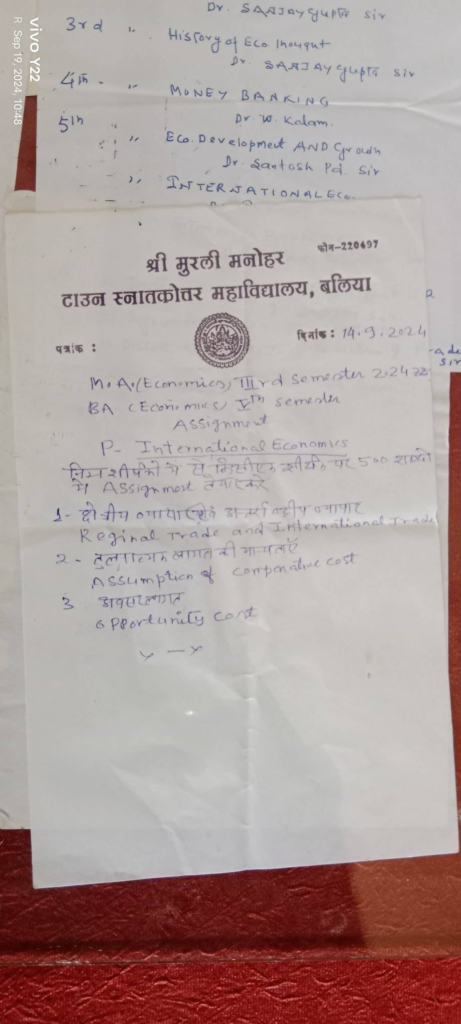 Dr. SANJAY Gupta Sir
3rd " History of Eco Thought
Dr. SANJAY Gupta Sir
4th - " MONEY BANKING
Dr. W. Kalam.
5th " Eco. Development AND Growth
Dr. Santosh Pd. Sir
" INTERNATIONAL Eco.
श्री मुरली मनोहर
फोन-220497
टाउन स्नातकोत्तर महाविद्यालय, बलिया
पत्रांक :
दिनांक : 14.9.2024
M.A. (Economics) IIIrd Semester 2024
BA (Economics) Vth Semester
Assignment
P- International Economics
निम्न शीर्षकों में से किसी एक शीर्षक पर 500 शब्दों
में Assignment तैयार करें
1- क्षेत्रीय व्यापार एवं अन्तर्राष्ट्रीय व्यापार
Reginal Trade and International Trade
2- तुलनात्मक लागत की मान्यताएँ
Assumption of comparative cost
3 अवसर लागत
Opportunity cost
x — x
Sir
vivo Y22
R Sep 19, 2024, 10:48